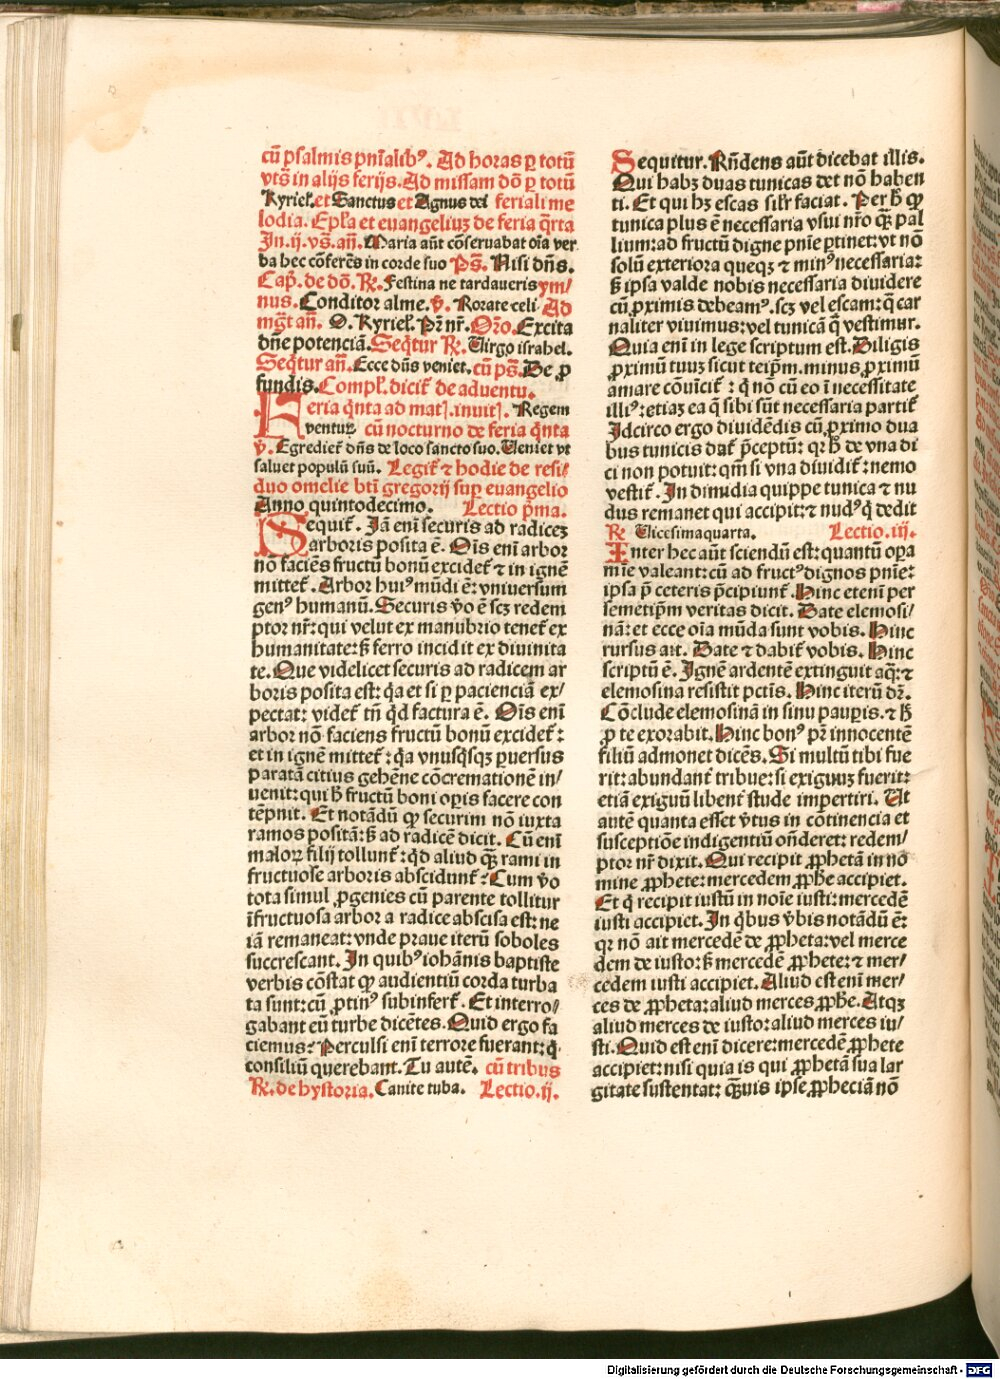 cū psalmis pnīalibꝰ. Ad horas ꝑ totū
vtś in alijs ferijs. Ad missam dō ꝑ totū
Kyriel̕. et Sanctus et Agnus dei feriali me
lodia. Epl̕a et euangeliuꝫ de feria q̄rta
Jn .ij. vś. añ. Maria aūt cōseruabat oīa ver
ba hec cōferēs in corde suo Pś. Nisi dn̄s.
Cap̕. de dō. ꝶ. Festina ne tardaueris ym/
nus. Conditor alme. ℣. Rorate celi Ad
mgt̄ añ. O. Kyriel̕. Pr̄ nr̄. Or̄o. Excita
dn̄e potenciā. Seq̄tur ꝶ. Virgo israhel.
Seq̄tur añ. Ecce dn̄s veniet. cū pś. De ꝓ
fundis. Compl̕. dicit̕ de aduentu.
Feria q̄nta ad mat̕. inuit̕. Regem
venturꝫ cū nocturno de feria q̄nta
℣. Egrediet̕ dn̄s de loco sancto suo. Veniet vt
saluet populū suū. Legit̕ ⁊ hodie de resi/
duo omelie btī gregorij suꝑ euangelio
Anno quintodecimo. Lectio pͥma.
Sequit̕. Jā enī securis ad radiceꝫ
arboris posita ē. Oīs enī arbor
nō faciēs fructū bonū excidet̕ ⁊ in ignē
mittet̕. Arbor huiꝰ mūdi ē: vniuersum
genꝰ humanū. Securis v̄o ē scꝫ redem
ptor nr̄: qui velut ex manubrio tenet̕ ex
humanitate: sꝫ ferro incidit ex diuinita
te. Que videlicet securis ad radicem ar
boris posita est: q̄a et si ꝑ pacienciā ex/
pectat: videt̕ tn̄ q̄d factura ē. Oīs enī
arbor nō faciens fructū bonū excidet̕:
et in ignē mittet̕: q̄a vnusq̄sqꝫ ꝑuersus
paratā citius gehēne cōcremationē in/
uenit: qui h̄ fructū boni oꝑis facere con
tēpnit. Et notādū ꝙ securim nō iuxta
ramos positā: sꝫ ad radicē dicit. Cū enī
malorꝫ filij tollunt̕: q̄d aliud qꝫ rami in
fructuose arboris abscidunt̕: Cum v̄o
tota simul ꝓgenies cū parente tollitur
īfructuosa arbor a radice abscisa est: ne
iā remaneat: vnde praue iterū soboles
succrescant. Jn quibꝰ iohānis baptiste
verbis cōstat ꝙ audientiū corda turba
ta sunt: cū ꝓtinꝰ subinfert̕. Et interro/
gabant eū turbe dicētes. Quid ergo fa
ciemus? Perculsi enī terrore fuerant: q̄
consiliū querebant. Tu autē. cū tribus
ꝶ. de hystoria. Canite tuba. Lectio .ij.
Sequitur. Rn̄dens aūt dicebat illis.
Qui habꝫ duas tunicas det nō haben
ti. Et qui hꝫ escas silr̕ faciat. Per h̄ ꝙ
tunica plus ē necessaria vsui nr̄o qꝫ pal
lium: ad fructū digne pnīe ꝑtinet: vt nō
solū exteriora queqꝫ ⁊ minꝰ necessaria:
sꝫ ipsa valde nobis necessaria diuidere
cū ꝓximis debeamꝰ. scꝫ vel escam: q̄ car
naliter viuimus: vel tunicā q̄ vestimur.
Quia enī in lege scriptum est. Diliges
ꝓximū tuuꝫ sicut teipm̄. minus ꝓximū
amare cōuīcit̕: q̄ nō cū eo ī necessitate
illiꝰ: etiaꝫ ea q̄ sibi sūt necessaria partit̕
Jdcirco ergo diuidēdis cū ꝓximo dua
bus tunicis dat̕ p̄ceptū: qr h̄ de vna di
ci non potuit: qm̄ si vna diuidit̕: nemo
vestit̕. Jn dimidia quippe tunica ⁊ nu
dus remanet qui accipit: ⁊ nudꝰ q̄ dedit
ꝶ. Vicesimaquarta. Lectio .iij.
Jnter hec aūt sciendū est: quantū oꝑa
mīe valeant: cū ad fructꝰ dignos pnīe:
ipsa p̄ ceteris p̄cipiunt̕. Hinc etenī per
semetipm̄ veritas dicit. Date elemosi/
nā: et ecce oīa mūda sunt vobis. Hinc
rursus ait. Date ⁊ dabit̕ vobis. Hinc
scriptū ē. Jgnē ardentē extinguit aq̄: ⁊
elemosina resistit pctīs. Hinc iterū dr̄.
Cōclude elemosinā in sinu pauꝑis. ⁊ h̄
ꝓ te exorabit. Hinc bonꝰ pr̄ innocentē
filiū admonet dicēs. Si multū tibi fue
rit: abundant̕ tribue: si exiguuꝫ fuerit:
etiā exiguū libent̕ stude impertiri. Ut
autē quanta esset v̄tus in cōtinencia et
susceptiōe indigentiū on̄deret: redem/
ptor nr̄ dixit. Qui recipit ꝓphetā in no
mine ꝓphete: mercedem ꝓphe accipiet.
Et q̄ recipit iustū in noīe iusti: mercedē
iusti accipiet. Jn q̄bus v̄bis notādū ē:
qr nō ait mercedē de ꝓpheta: vel merce
dem de iusto: sꝫ mercedē ꝓphete: ⁊ mer/
cedem iusti accipiet. Aliud est enī mer/
ces de ꝓpheta: aliud merces ꝓphe. Atqꝫ
aliud merces de iusto: aliud merces iu/
sti. Quid est enī dicere: mercedē ꝓphete
accipiet: nisi quia is qui ꝓphetā sua lar
gitate sustentat: qꝫuis ipse ꝓpheciā nō
Digitalisierung gefördert durch die Deutsche Forschungsgemeinschaft - DFG